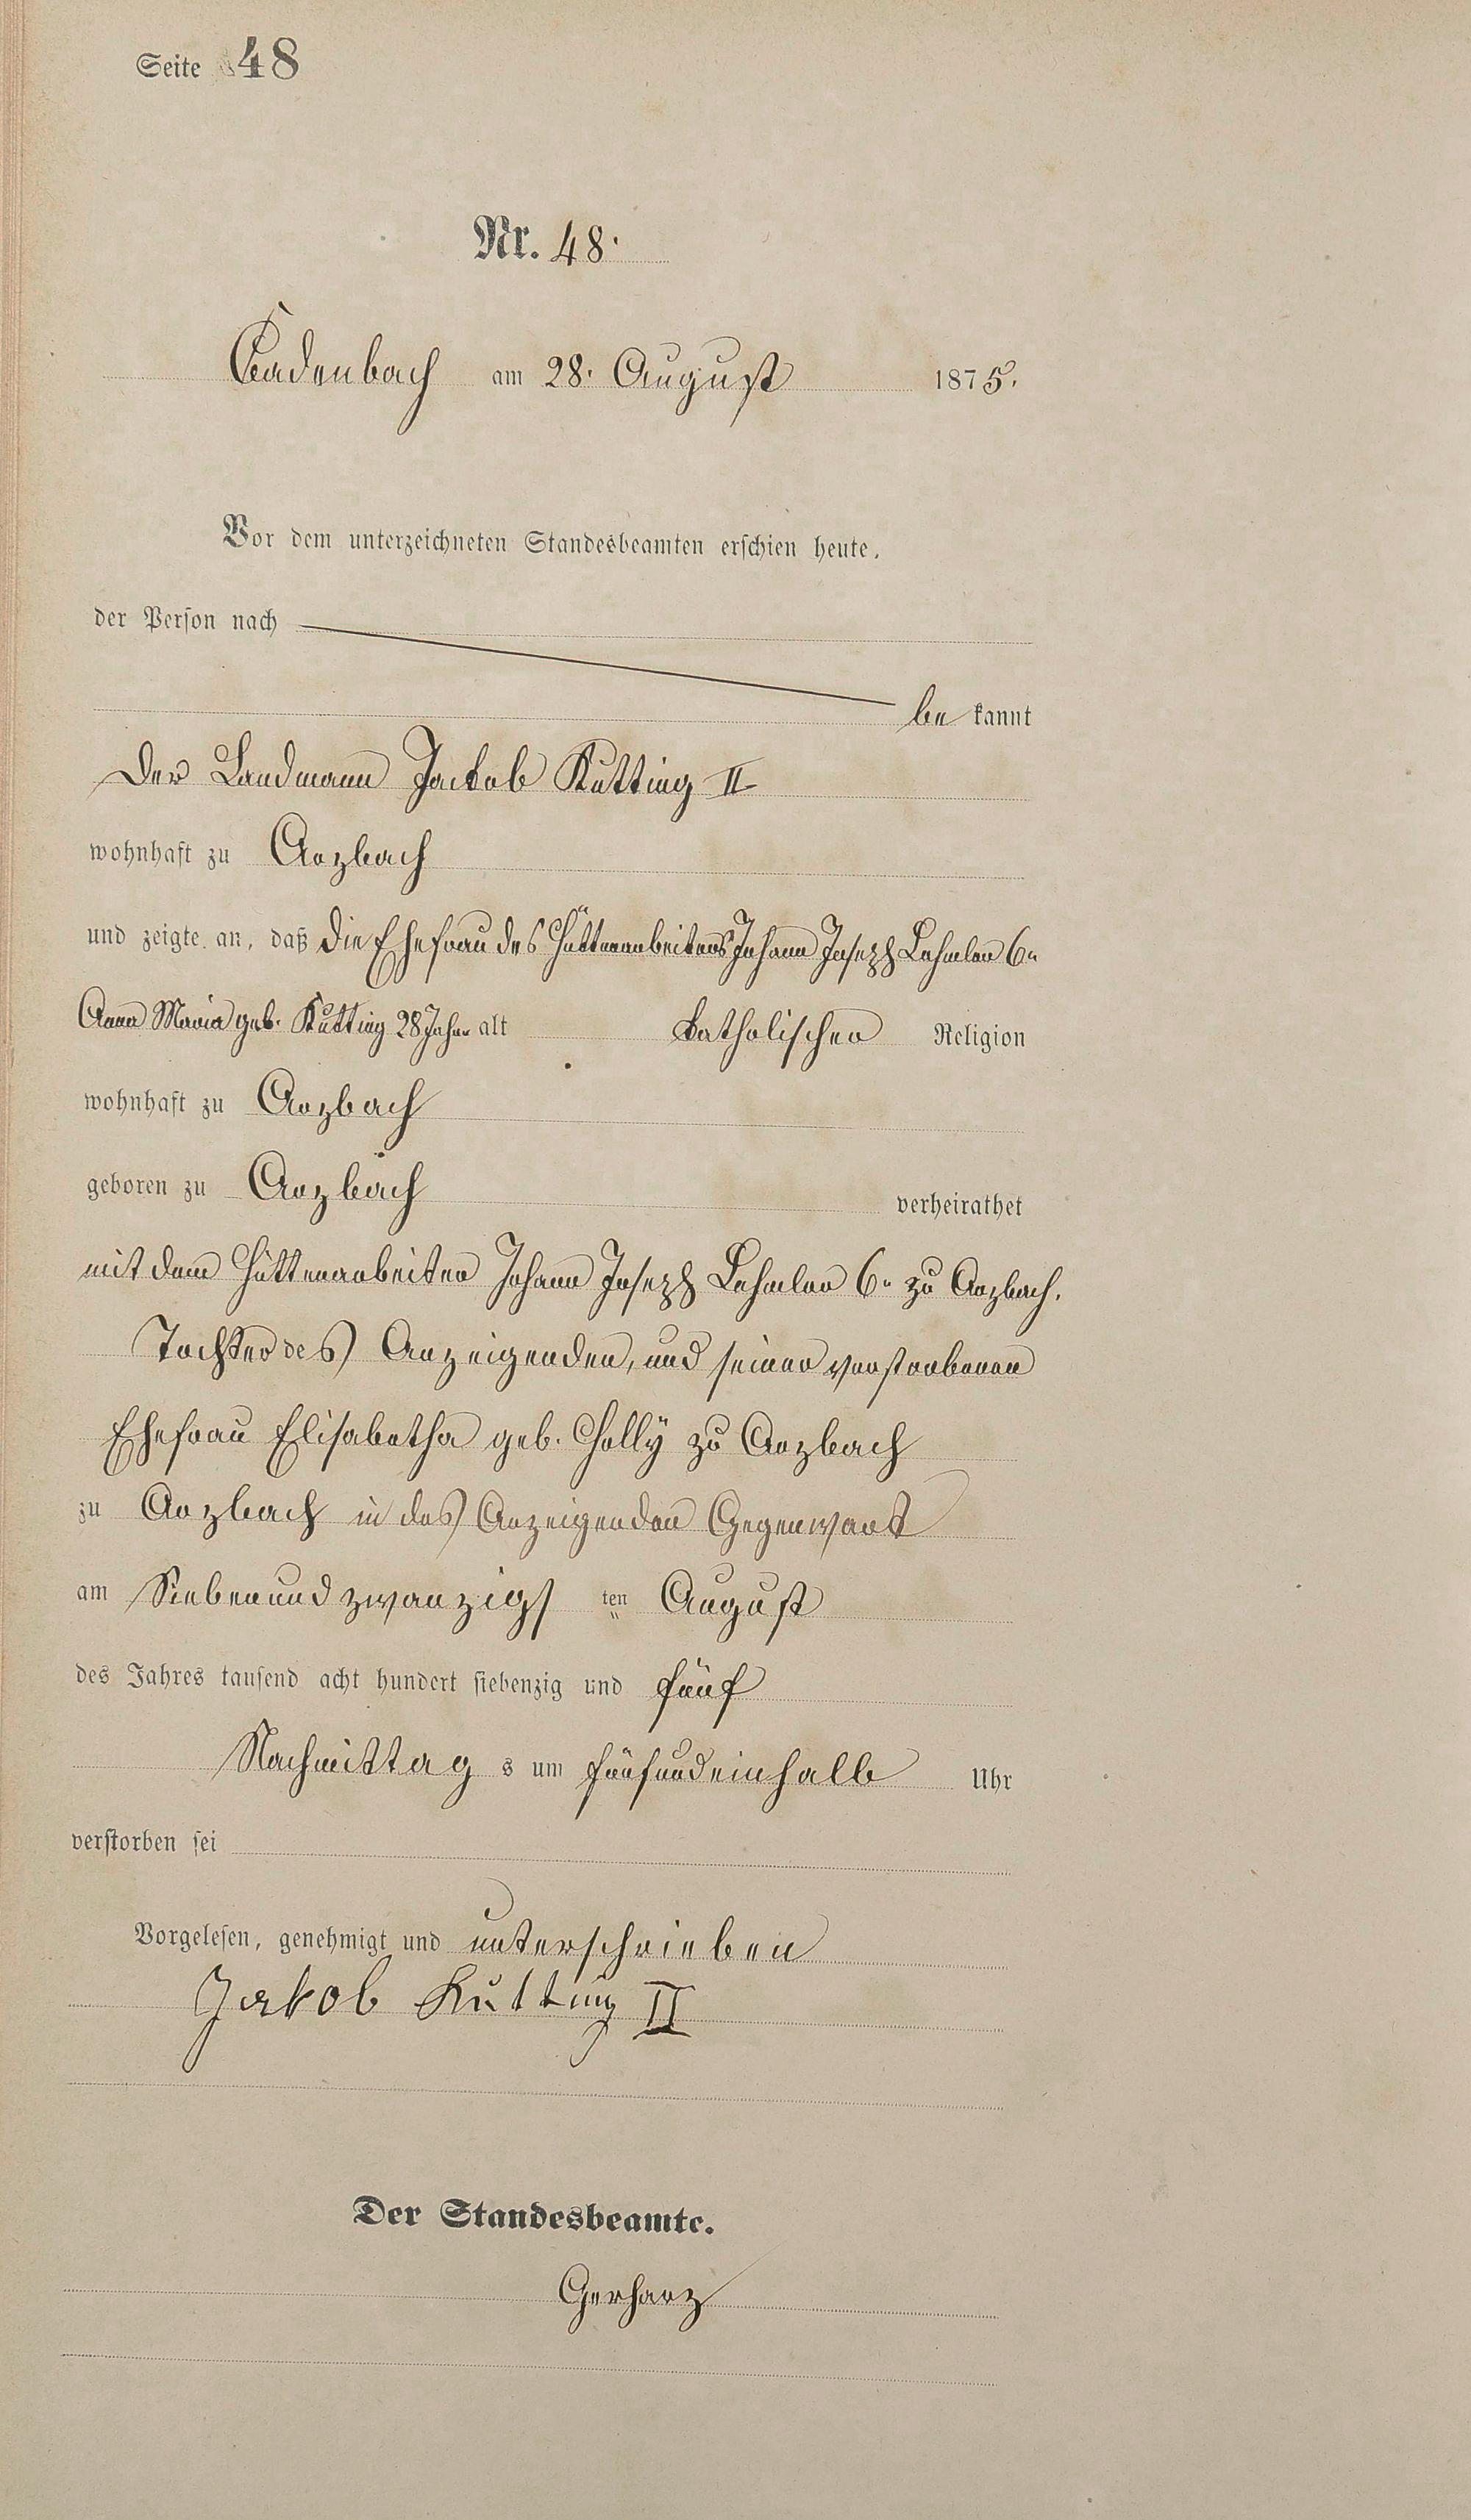 Seite 48
Nr. 48.
Cadenbach am 28. August 1875.
Vor dem unterzeichneten Standesbeamten erschien heute,
der Person nach
be kannt
Der Landmann Jackob Kutting II
wohnhaft zu Arzbach
und zeigte an, daß die Ehefrau des Hüttenarbeiters Johann Joseph Lehmler 6r
Anna Maria geb. Kutting 28 Jahre alt katholischer Religion
wohnhaft zu Arzbach
geboren zu Arzbach verheirathet
mit dem Hüttenarbeiter Johann Joseph Lehmler 6r zu Arzbach.
Tochter des Anzeigenden, und seiner verstorbenen
Ehefrau Elisabetha geb. Holly zu Arzbach
zu Arzbach in des Anzeigenden Gegenwart
am Siebenundzwanzigs ten August
des Jahres tausend acht hundert siebenzig und fünf
Nachmittag s um fünfundeinhalb Uhr
verstorben sei
Vorgelesen, genehmigt und unterschrieben
Jakob Kutting II
Der Standesbeamte.
Gerharz